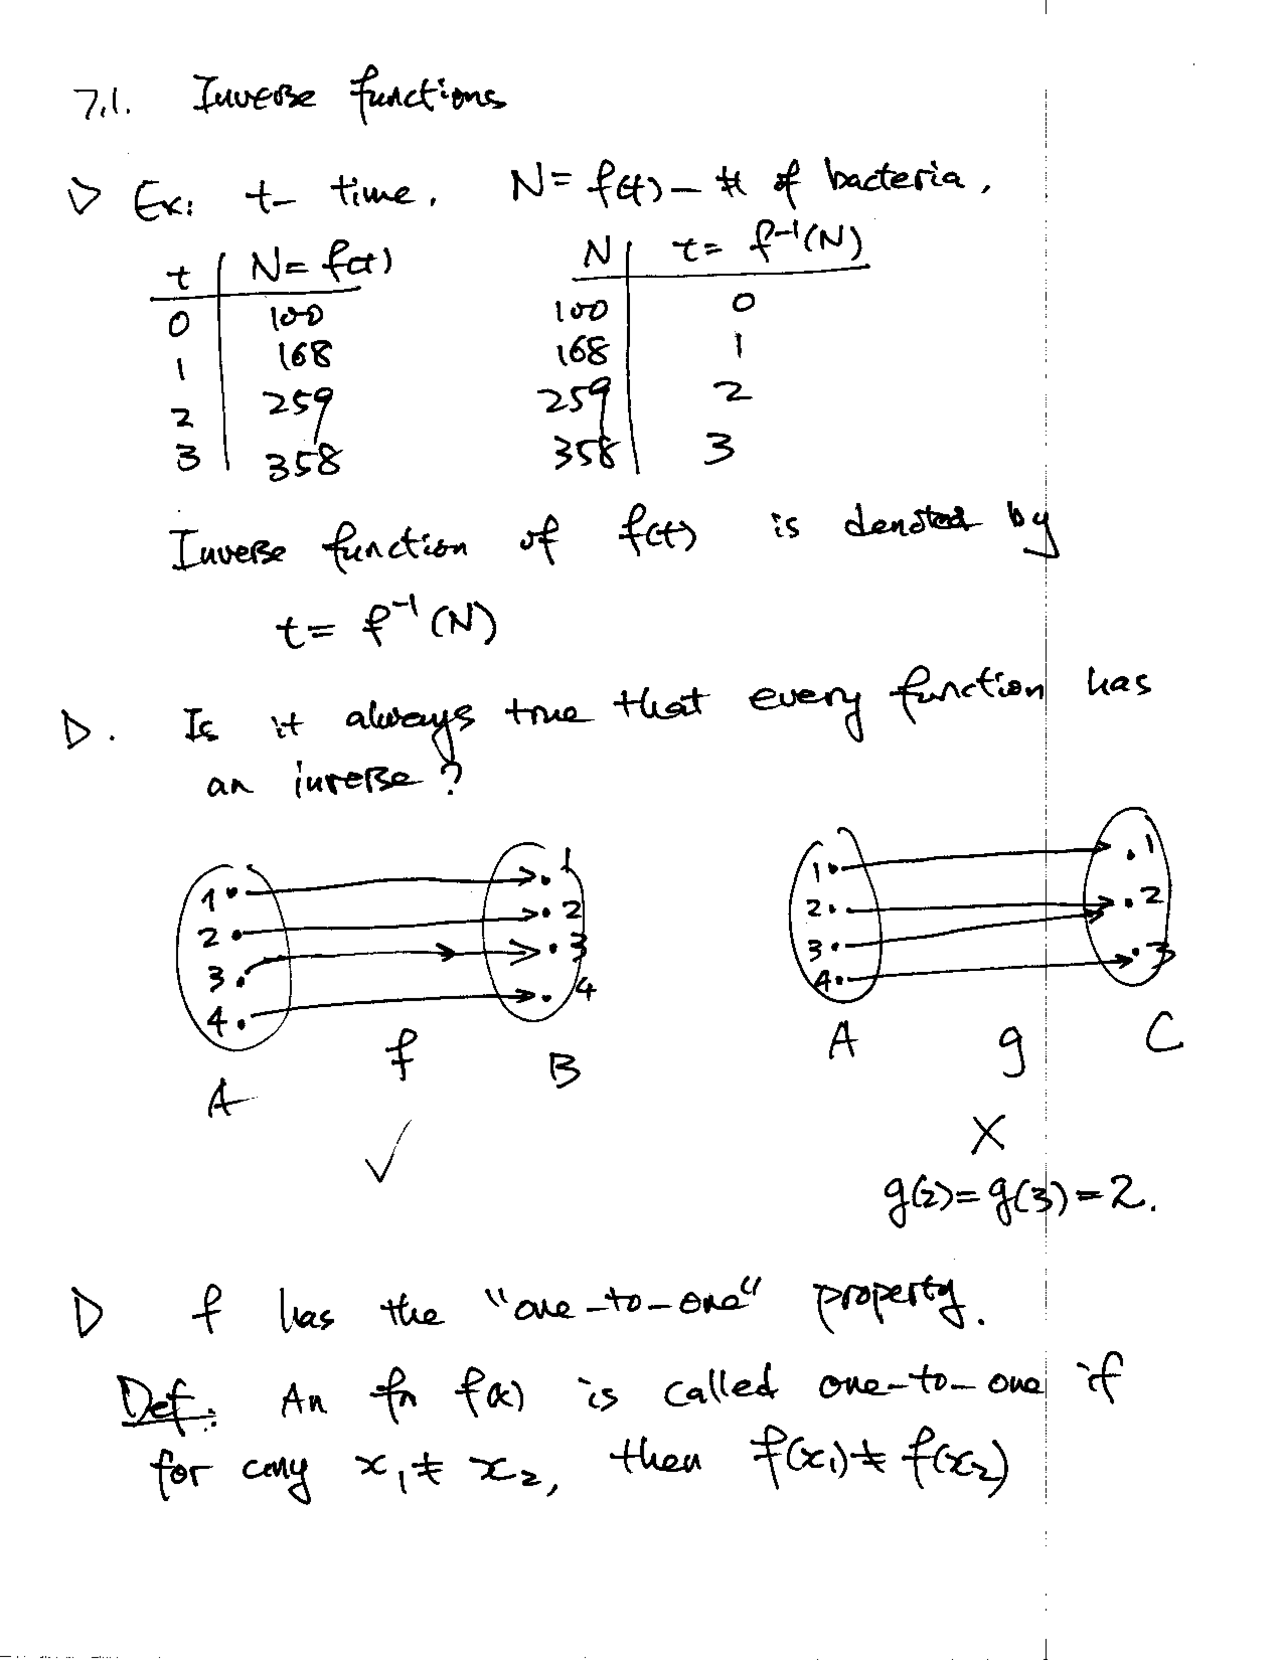 7.1. Inverse functions
▷ Ex: t – time. N = f(t) – # of bacteria.
t | N = f(t)
0 | 100
1 | 168
2 | 259
3 | 358
N | t = f⁻¹(N)
100 | 0
168 | 1
259 | 2
358 | 3
Inverse function of f(t) is denoted by
t = f⁻¹(N)
▷. Is it always true that every function has
an inverse?
1 2 3 4
1 2 3 4
A f B
✓
1 2 3 4
1 2 3
A g C
X
g(2) = g(3) = 2.
▷ f has the "one-to-one" property.
Def: An fn f(x) is called one-to-one if
for any x₁ ≠ x₂, then f(x₁) ≠ f(x₂)